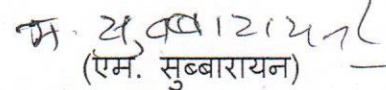 म. सुब्बारायन
(एम. सुब्बारायन)